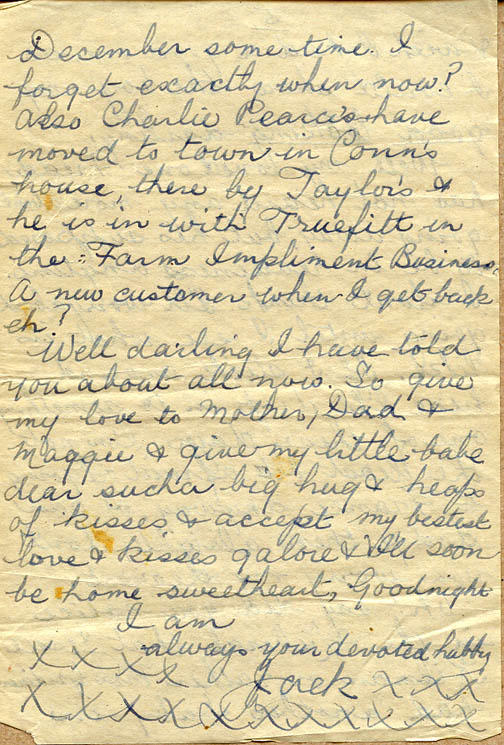 December some time. I
forget exactly when now?
Also Charlie Pearce's have
moved to town in Conn's
house, there by Taylor's &
he is in with Truefitt in
the Farm Impliment Business,
A new customer when I get back
eh?
Well darling I have told
you about all now. So give
my love to Mother, Dad &
Maggie & give my little babe
dear sucha big hug & heaps
of kisses & accept my bestest
love & kisses galore & I'll soon
be home sweetheart, Goodnight
I am
always your devoted hubby
X X X X
Jack X X X
X X X X X X X X X X